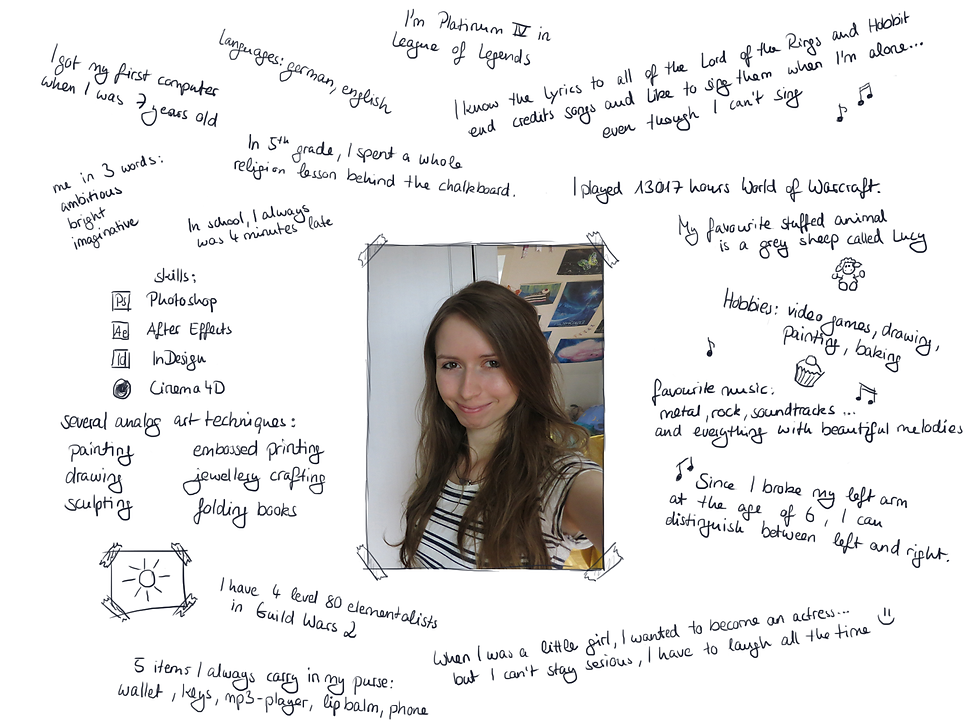 I'm Platinum IV in
League of Legends
I got my first computer
when I was 7 years old
Languages: german, english
I know the lyrics to all of the Lord of the Rings and Hobbit
end credits songs and like to sing them when I'm alone...
even though I can't sing
In 5th grade, I spent a whole
religion lesson behind the chalkboard.
me in 3 words:
ambitious
bright
imaginative
In school, I always
was 4 minutes late
I played 13017 hours World of Warcraft.
My favourite stuffed animal
is a grey sheep called Lucy
skills:
Ps Photoshop
Ae After Effects
Id InDesign
Cinema 4D
several analog art techniques:
painting embossed printing
drawing jewellery crafting
sculpting folding books
Hobbies: video games, drawing,
painting, baking
favourite music:
metal, rock, soundtracks ...
and everything with beautiful melodies
Since I broke my left arm
at the age of 6, I can
distinguish between left and right.
I have 4 level 80 elementalists
in Guild Wars 2
When I was a little girl, I wanted to become an actress...
but I can't stay serious, I have to laugh all the time
5 items I always carry in my purse:
wallet, keys, mp3-player, lip balm, phone